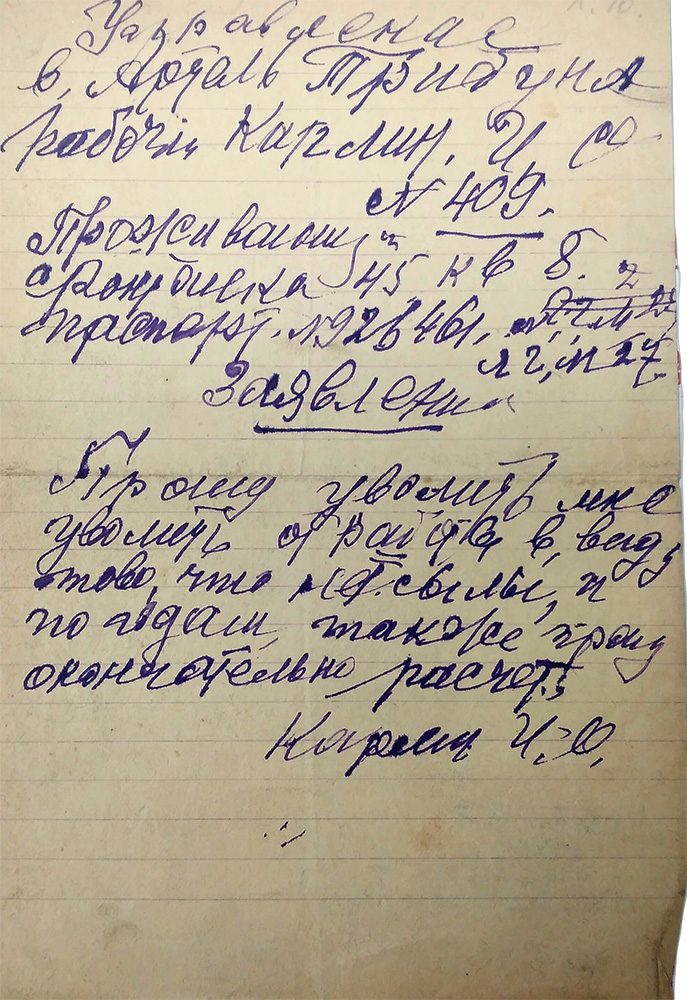 Управление
в, Артель Трибуна
рабочий Карлин, И. О
N 409.
Проживающ
45 кв 8.
паспорт. N 926461.
лг, м 27
Заявлени
Прошу уволить мне
уволить от работы в, виду
тово, что нет. сылы, и
по годам, также прошу
окончательно расчет,
Карлин И. О.